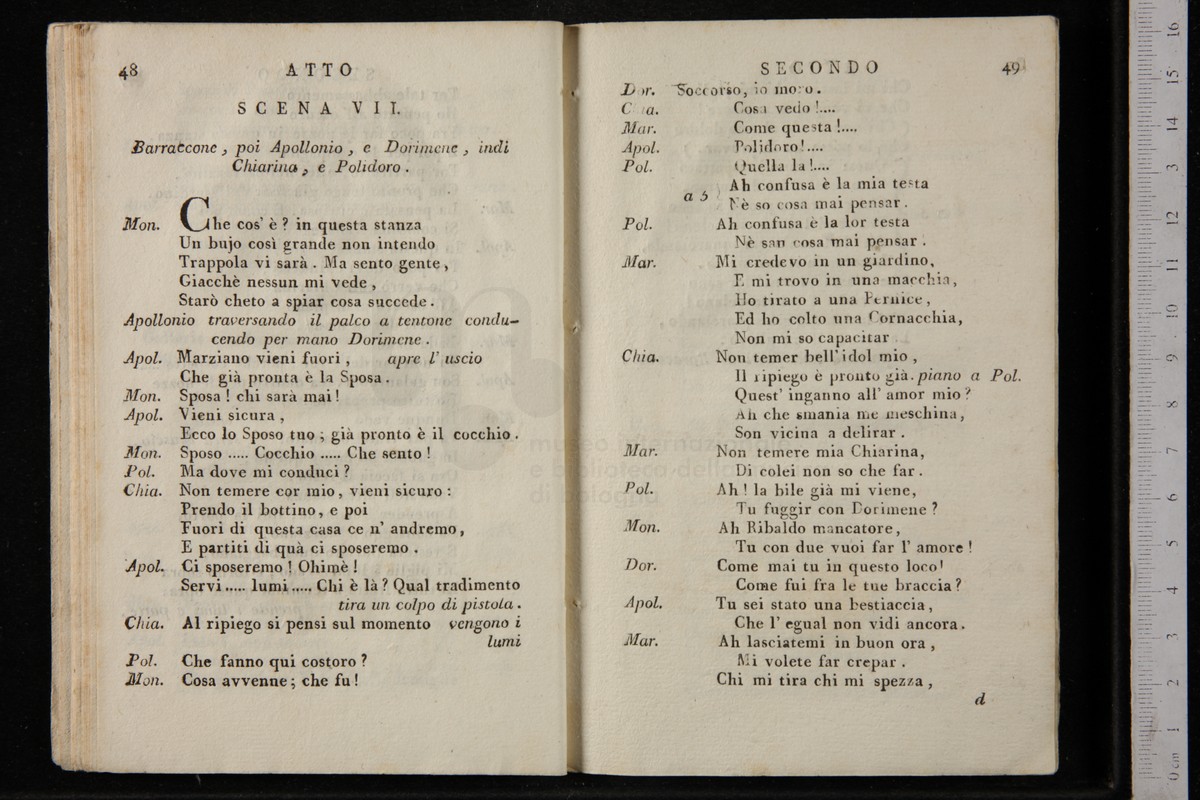 48 ATTO
SCENA VII.
Barraccone, poi Apollonio, e Dorimene, indi
Chiarina, e Polidoro.
Mon. Che cos' è? in questa stanza
Un bujo così grande non intendo
Trappola vi sarà. Ma sento gente,
Giacchè nessun mi vede,
Starò cheto a spiar cosa succede.
Apollonio traversando il palco a tentone condu-
cendo per mano Dorimene.
Apol. Marziano vieni fuori, apre l' uscio
Che già pronta è la Sposa.
Mon. Sposa! chi sarà mai!
Apol. Vieni sicura,
Ecco lo Sposo tuo; già pronto è il cocchio.
Mon. Sposo ..... Cocchio ..... Che sento!
Pol. Ma dove mi conduci?
Chia. Non temere cor mio, vieni sicuro:
Prendo il bottino, e poi
Fuori di questa casa ce n' andremo,
E partiti di quà ci sposeremo.
Apol. Ci sposeremo! Ohimè!
Servi ..... lumi ..... Chi è là? Qual tradimento
tira un colpo di pistola.
Chia. Al ripiego si pensi sul momento vengono i
lumi
Pol. Che fanno qui costoro?
Mon. Cosa avvenne; che fu!
SECONDO 49
Dor. Soccorso, io moro.
Chia. Cosa vedo!....
Mar. Come questa!....
Apol. Polidoro!....
Pol. Quella la!....
a 5 Ah confusa è la mia testa
Nè so cosa mai pensar.
Pol. Ah confusa è la lor testa
Nè san cosa mai pensar.
Mar. Mi credevo in un giardino,
E mi trovo in una macchia,
Ho tirato a una Pernice,
Ed ho colto una Cornacchia,
Non mi so capacitar
Chia. Non temer bell' idol mio,
Il ripiego è pronto già. piano a Pol.
Quest' inganno all' amor mio?
Ah che smania me meschina,
Son vicina a delirar.
Mar. Non temere mia Chiarina,
Di colei non so che far.
Pol. Ah! la bile già mi viene,
Tu fuggir con Dorimene?
Mon. Ah Ribaldo mancatore,
Tu con due vuoi far l' amore!
Dor. Come mai tu in questo loco!
Come fui fra le tue braccia?
Apol. Tu sei stato una bestiaccia,
Che l' egual non vidi ancora.
Mar. Ah lasciatemi in buon ora,
Mi volete far crepar.
Chi mi tira chi mi spezza,
d
museo internazionale
e biblioteca della
di bologna
0 cm 1 2 3 4 5 6 7 8 9 10 11 12 13 14 15 16